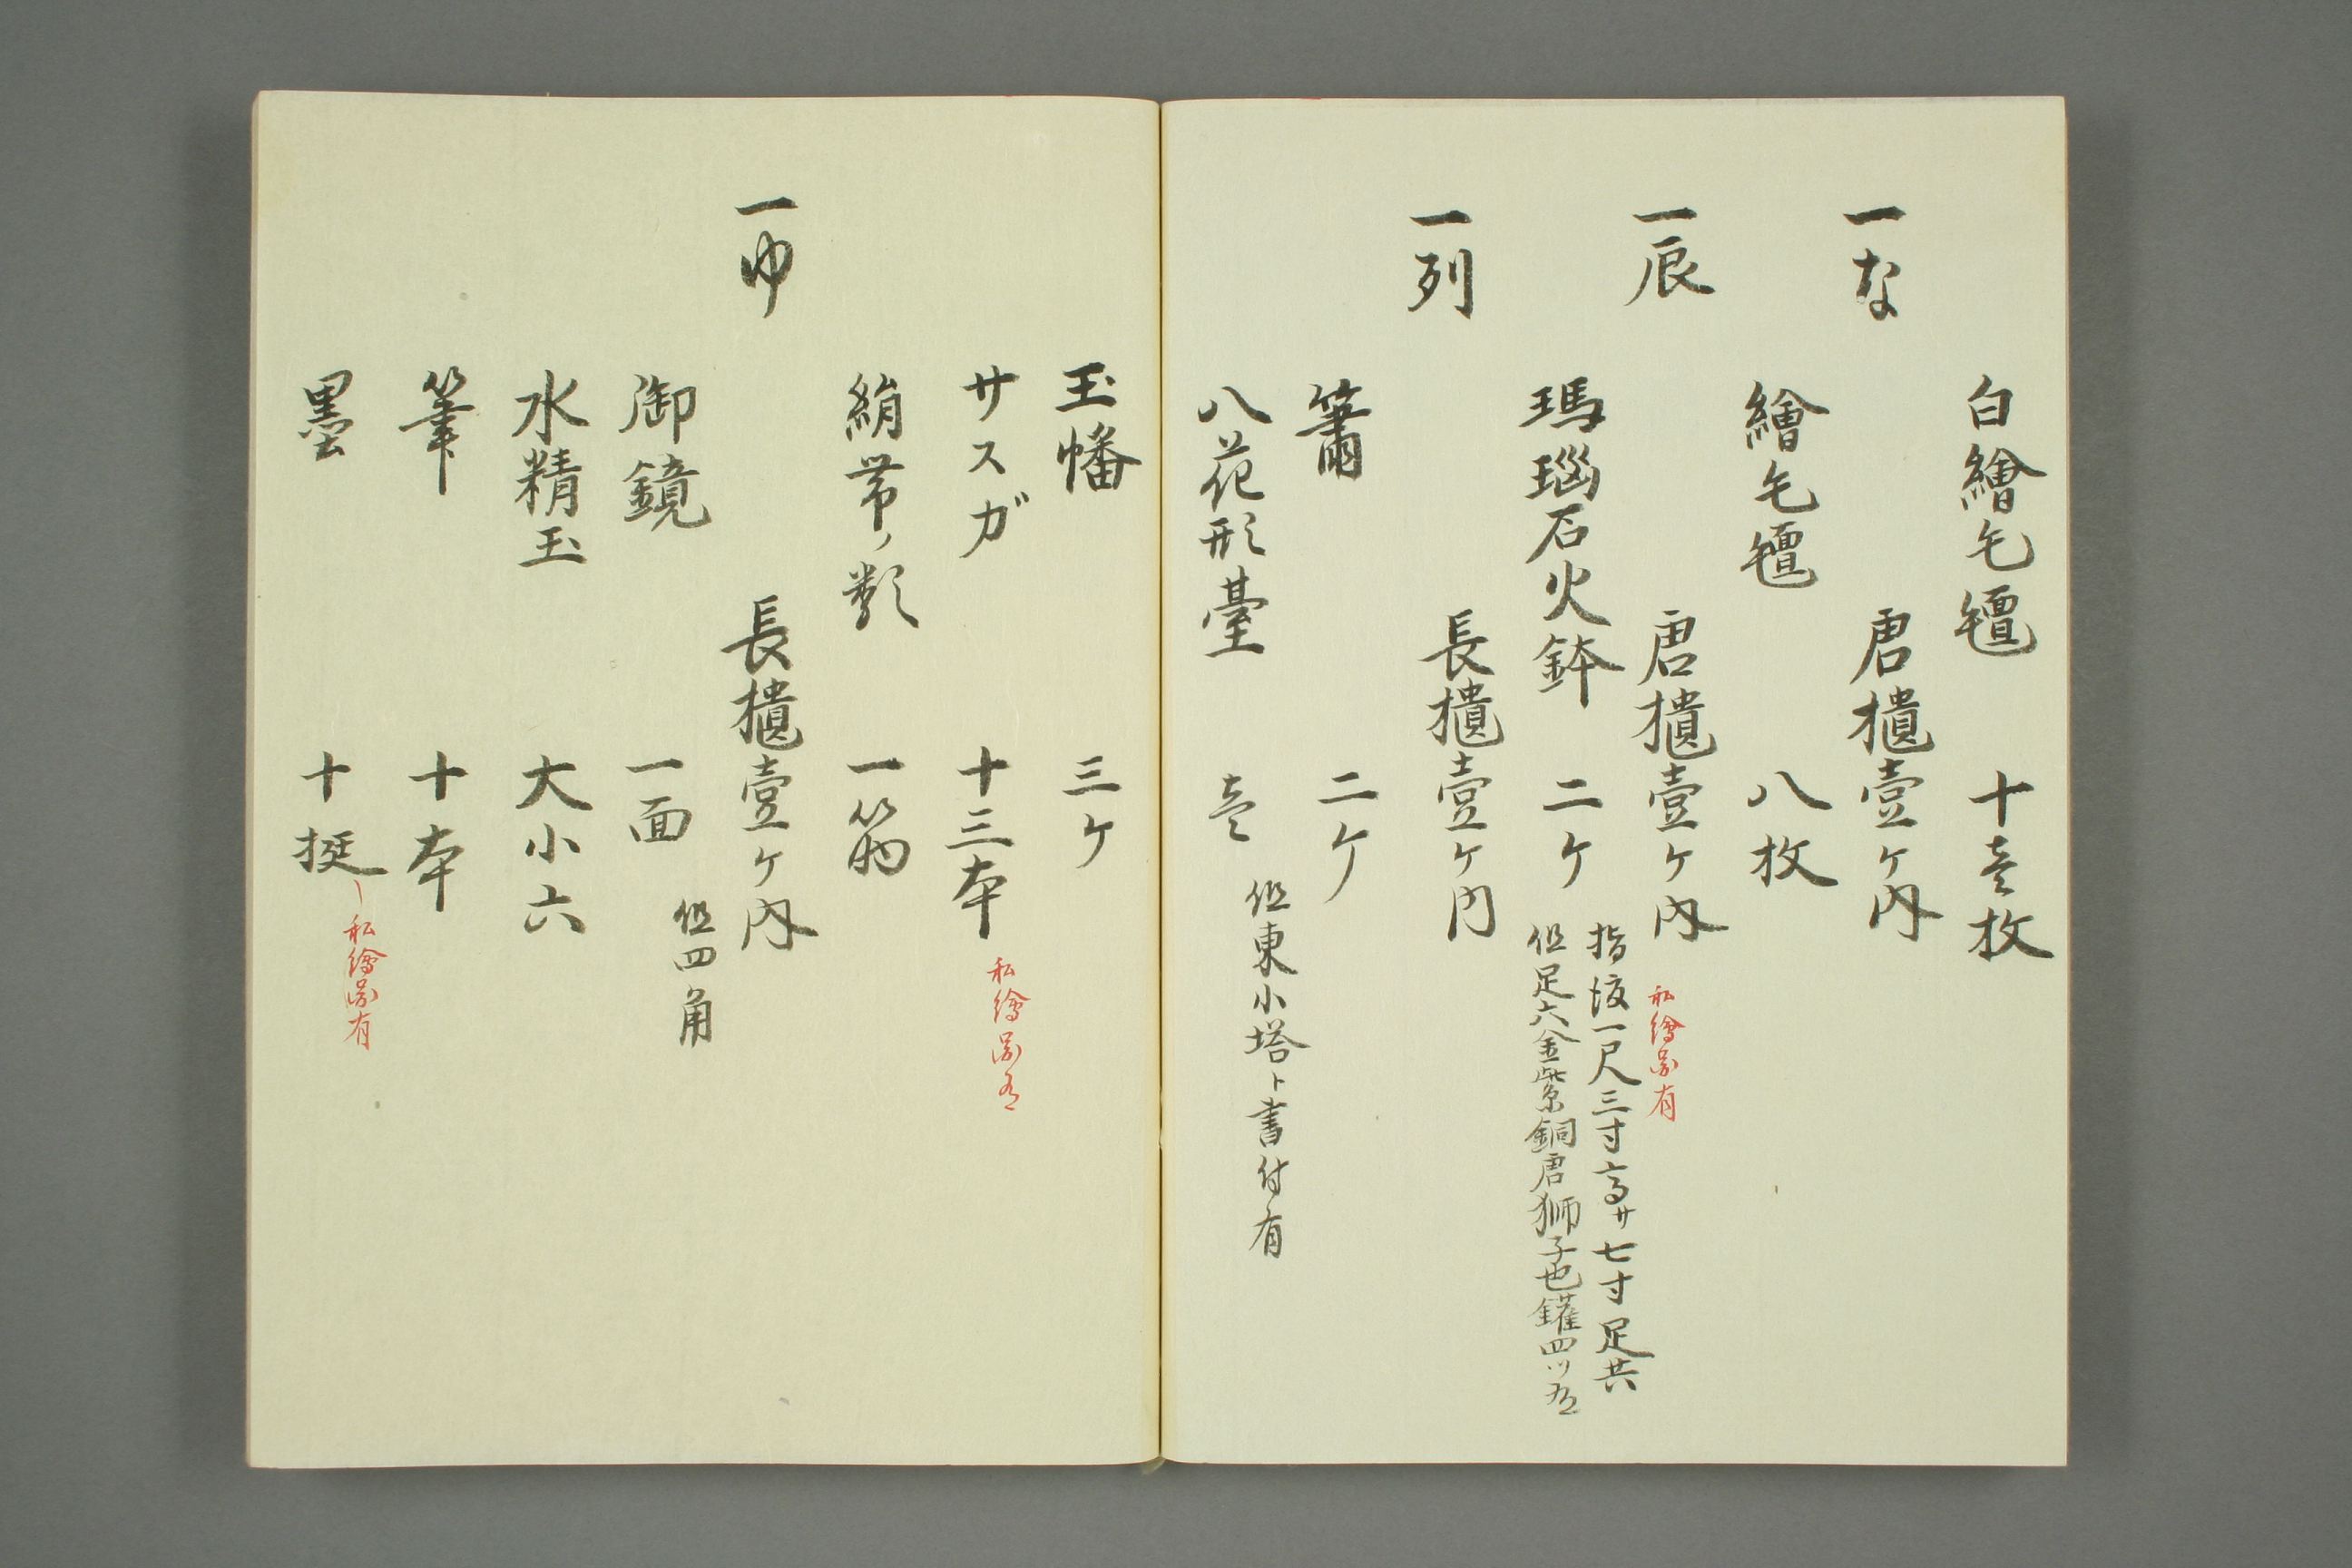 白繪毛氈 十壹枚
一な 唐櫃壹ヶ内
繪毛氈 八枚
一辰 唐櫃壹ヶ内 私繪圖有
瑪瑙石火鉢 二ヶ
指渡一尺三寸高サ七寸足共
但足六金紫銅唐獅子也鑵四ツ有
一列 長櫃壹ヶ内
簫 二ヶ
八花形臺 壹 但東小塔ト書付有
玉幡 三ケ
サスガ 十三本 私繪圖有
絹帯ノ類 一筋
一ゆ 長櫃壹ヶ内
御鏡 一面 但四角
水精玉 大小六
筆 十本
墨 十挺 私繪圖有